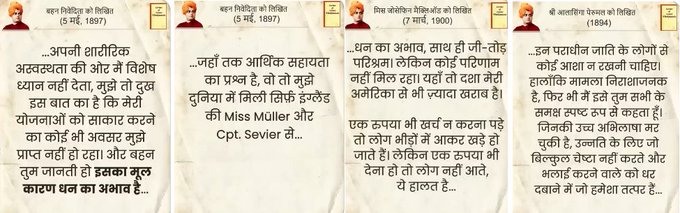 बहन निवेदिता को लिखित
(5 मई, 1897)
...अपनी शारीरिक
अस्वस्थता की ओर मैं विशेष
ध्यान नहीं देता, मुझे तो दुख
इस बात का है कि मेरी
योजनाओं को साकार करने
का कोई भी अवसर मुझे
प्राप्त नहीं हो रहा। और बहन
तुम जानती हो इसका मूल
कारण धन का अभाव है...
बहन निवेदिता को लिखित
(5 मई, 1897)
...जहाँ तक आर्थिक सहायता
का प्रश्न है, वो तो मुझे
दुनिया में मिली सिर्फ़ इंग्लैंड
की Miss Müller और
Cpt. Sevier से...
मिस जोसेफिन मैक्लिऑड को लिखित
(7 मार्च, 1900)
...धन का अभाव, साथ ही जी-तोड़
परिश्रम। लेकिन कोई परिणाम
नहीं मिल रहा। यहाँ तो दशा मेरी
अमेरिका से भी ज़्यादा खराब है।
एक रुपया भी खर्च न करना पड़े
तो लोग भीड़ों में आकर खड़े हो
जाते हैं। लेकिन एक रुपया भी
देना हो तो लोग नहीं आते,
ये हालत है...
श्री आलासिंगा पेरुमल को लिखित
(1894)
...इन पराधीन जाति के लोगों से
कोई आशा न रखनी चाहिए।
हालाँकि मामला निराशाजनक
है, फिर भी मैं इसे तुम सभी के
समक्ष स्पष्ट रूप से कहता हूँ।
जिनकी उच्च अभिलाषा मर
चुकी है, उन्नति के लिए जो
बिल्कुल चेष्टा नहीं करते और
भलाई करने वाले को धर
दबाने में जो हमेशा तत्पर हैं...